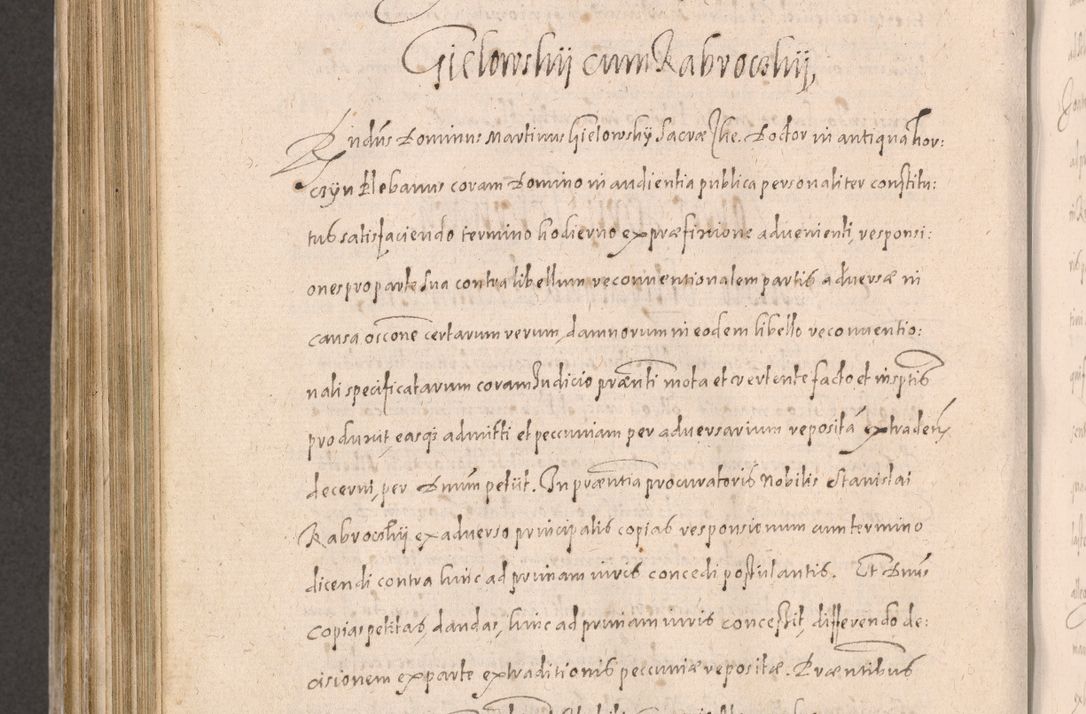 Gielowskÿ cum Kabrocskÿ,
Rndus Dominus Martinus Gielowskÿ Sacræ The. Doctor in antiqua Hor:
czÿn Plebanus coram Domino in audientia publica personaliter constitu:
tus satisfaciendo termino hodierno ex præfixione advenienti, responsi:
ones pro parte sua contra libellum reconventionalem partis adversæ in
causa oscone certarum rerum, damnorum in eodem libello reconventio:
nali specificatarum coram Judicio prænti mota et vertente facto et in sptis
produxit, easq; admitti et peccuniam per adversarium repositā extradetȷ
decerni, per Dnum petiit. In præntia procuratoris Nobilis Stanislai
Kabrocskÿ ex adverso principalis copias responsionum cum termino
dicendi contra hinc ad primam iuris concedi postulantis. Et Dnus
copias petitas, dandas, hinc ad primam iuris concessit, differendo de:
cisionem ex parte extraditionis peccuniæ repositæ. Præntibus